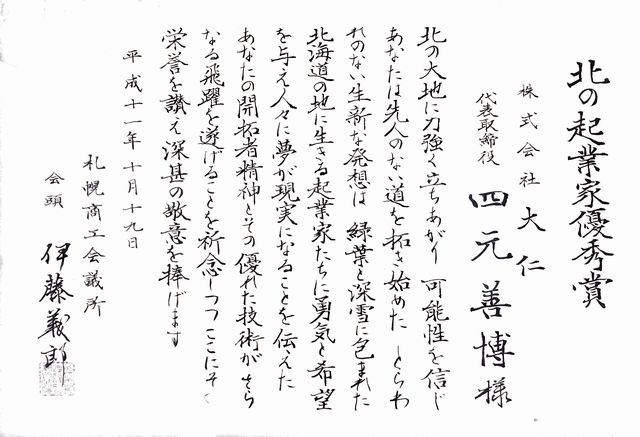 北の起業家優秀賞
株式会社 大仁
代表取締役 四元善博様
北の大地に力強く立ちあがり 可能性を信じ
あなたは先人のない道を拓き始めた とらわ
れのない生新な発想は 緑葉と深雪に包まれた
北海道の地に生きる起業家たちに勇気と希望
を与え人々に夢が現実になることを伝えた
あなたの開拓者精神とその優れた技術がさら
なる飛躍を遂げることを祈念しつつここにその
栄誉を讃え深甚の敬意を捧げます
平成十一年十月十九日
札幌商工会議所
会頭 伊藤義郎